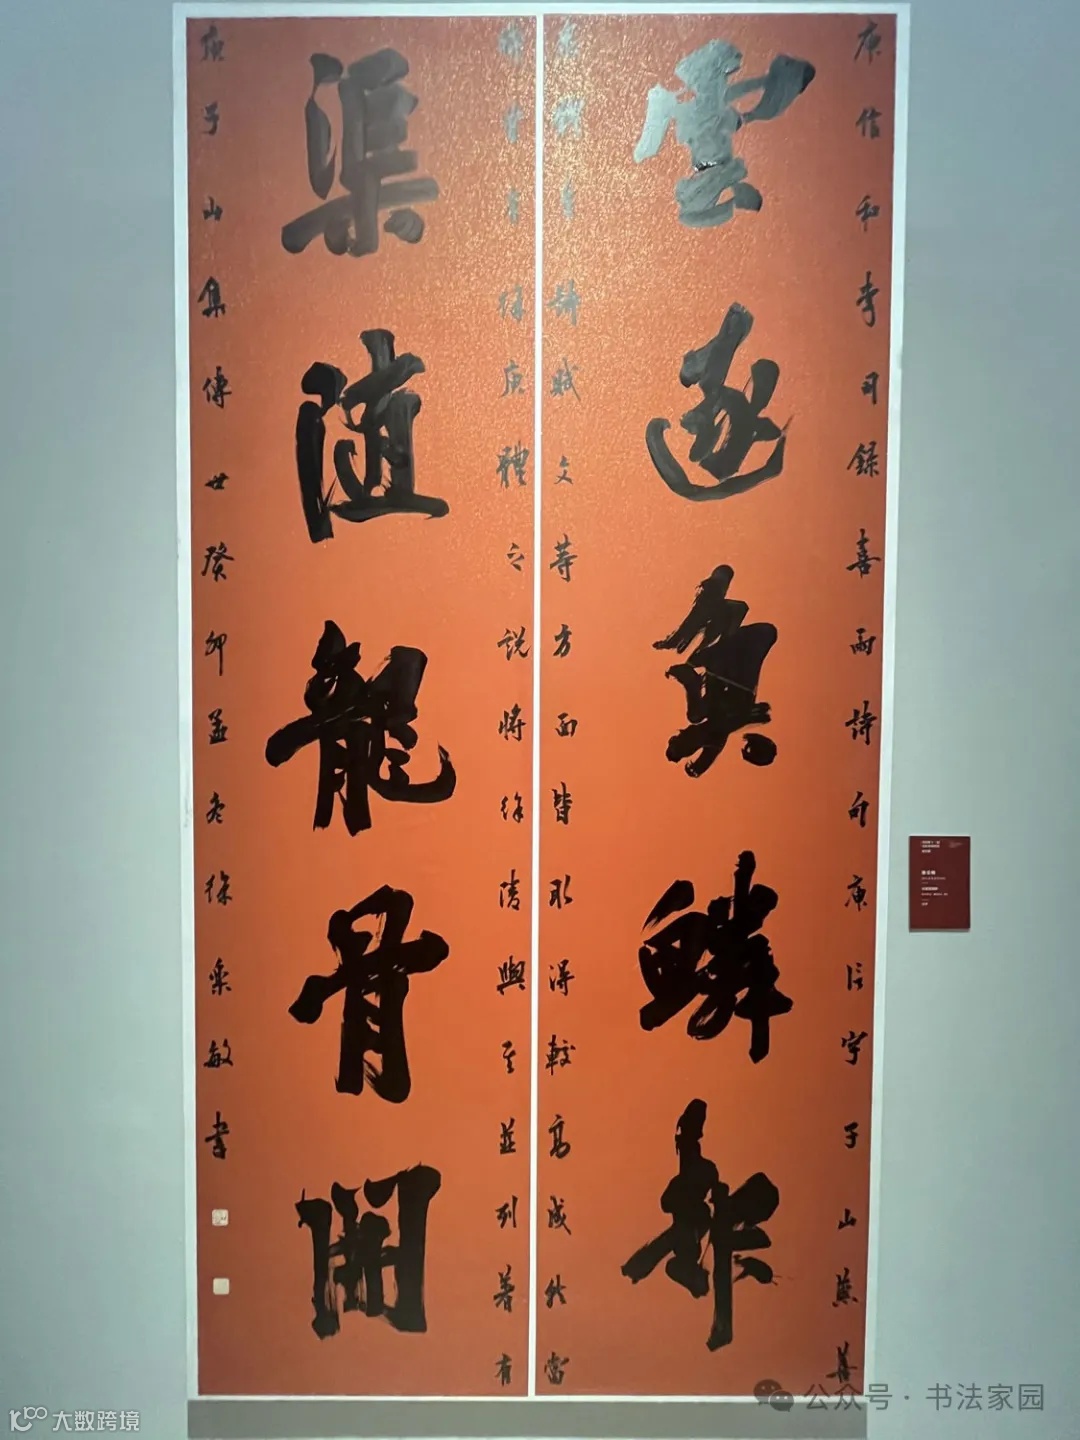 庾信和李司録喜雨詩句庾信字子山兼善
雲逐魚鱗起
辭賦文等方面皆取得較高成就當
有徐庾體之説將徐陵與其並列著有
渠随龍骨開
庾子山集傳世癸卯孟冬徐樂敏書
公众号·书法家园
大数跨境